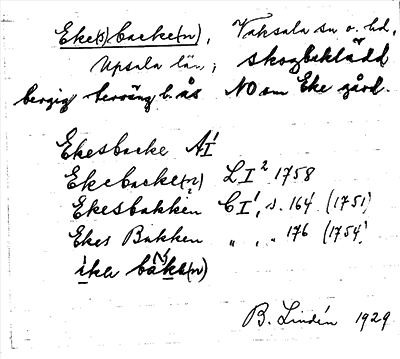 Eke(s)backe(n), Vaksala sn o. hd,
Upsala län; skogbeklädd
bergig terräng l. ås NO om Eke gård.
Ekesbacke AI1
Ekebacke(n) LI2 1758
Ekesbakken CI1, s. 164 (1751)
Ekes Bakken „ , „ 176 (1754)
B. Lindén 1929